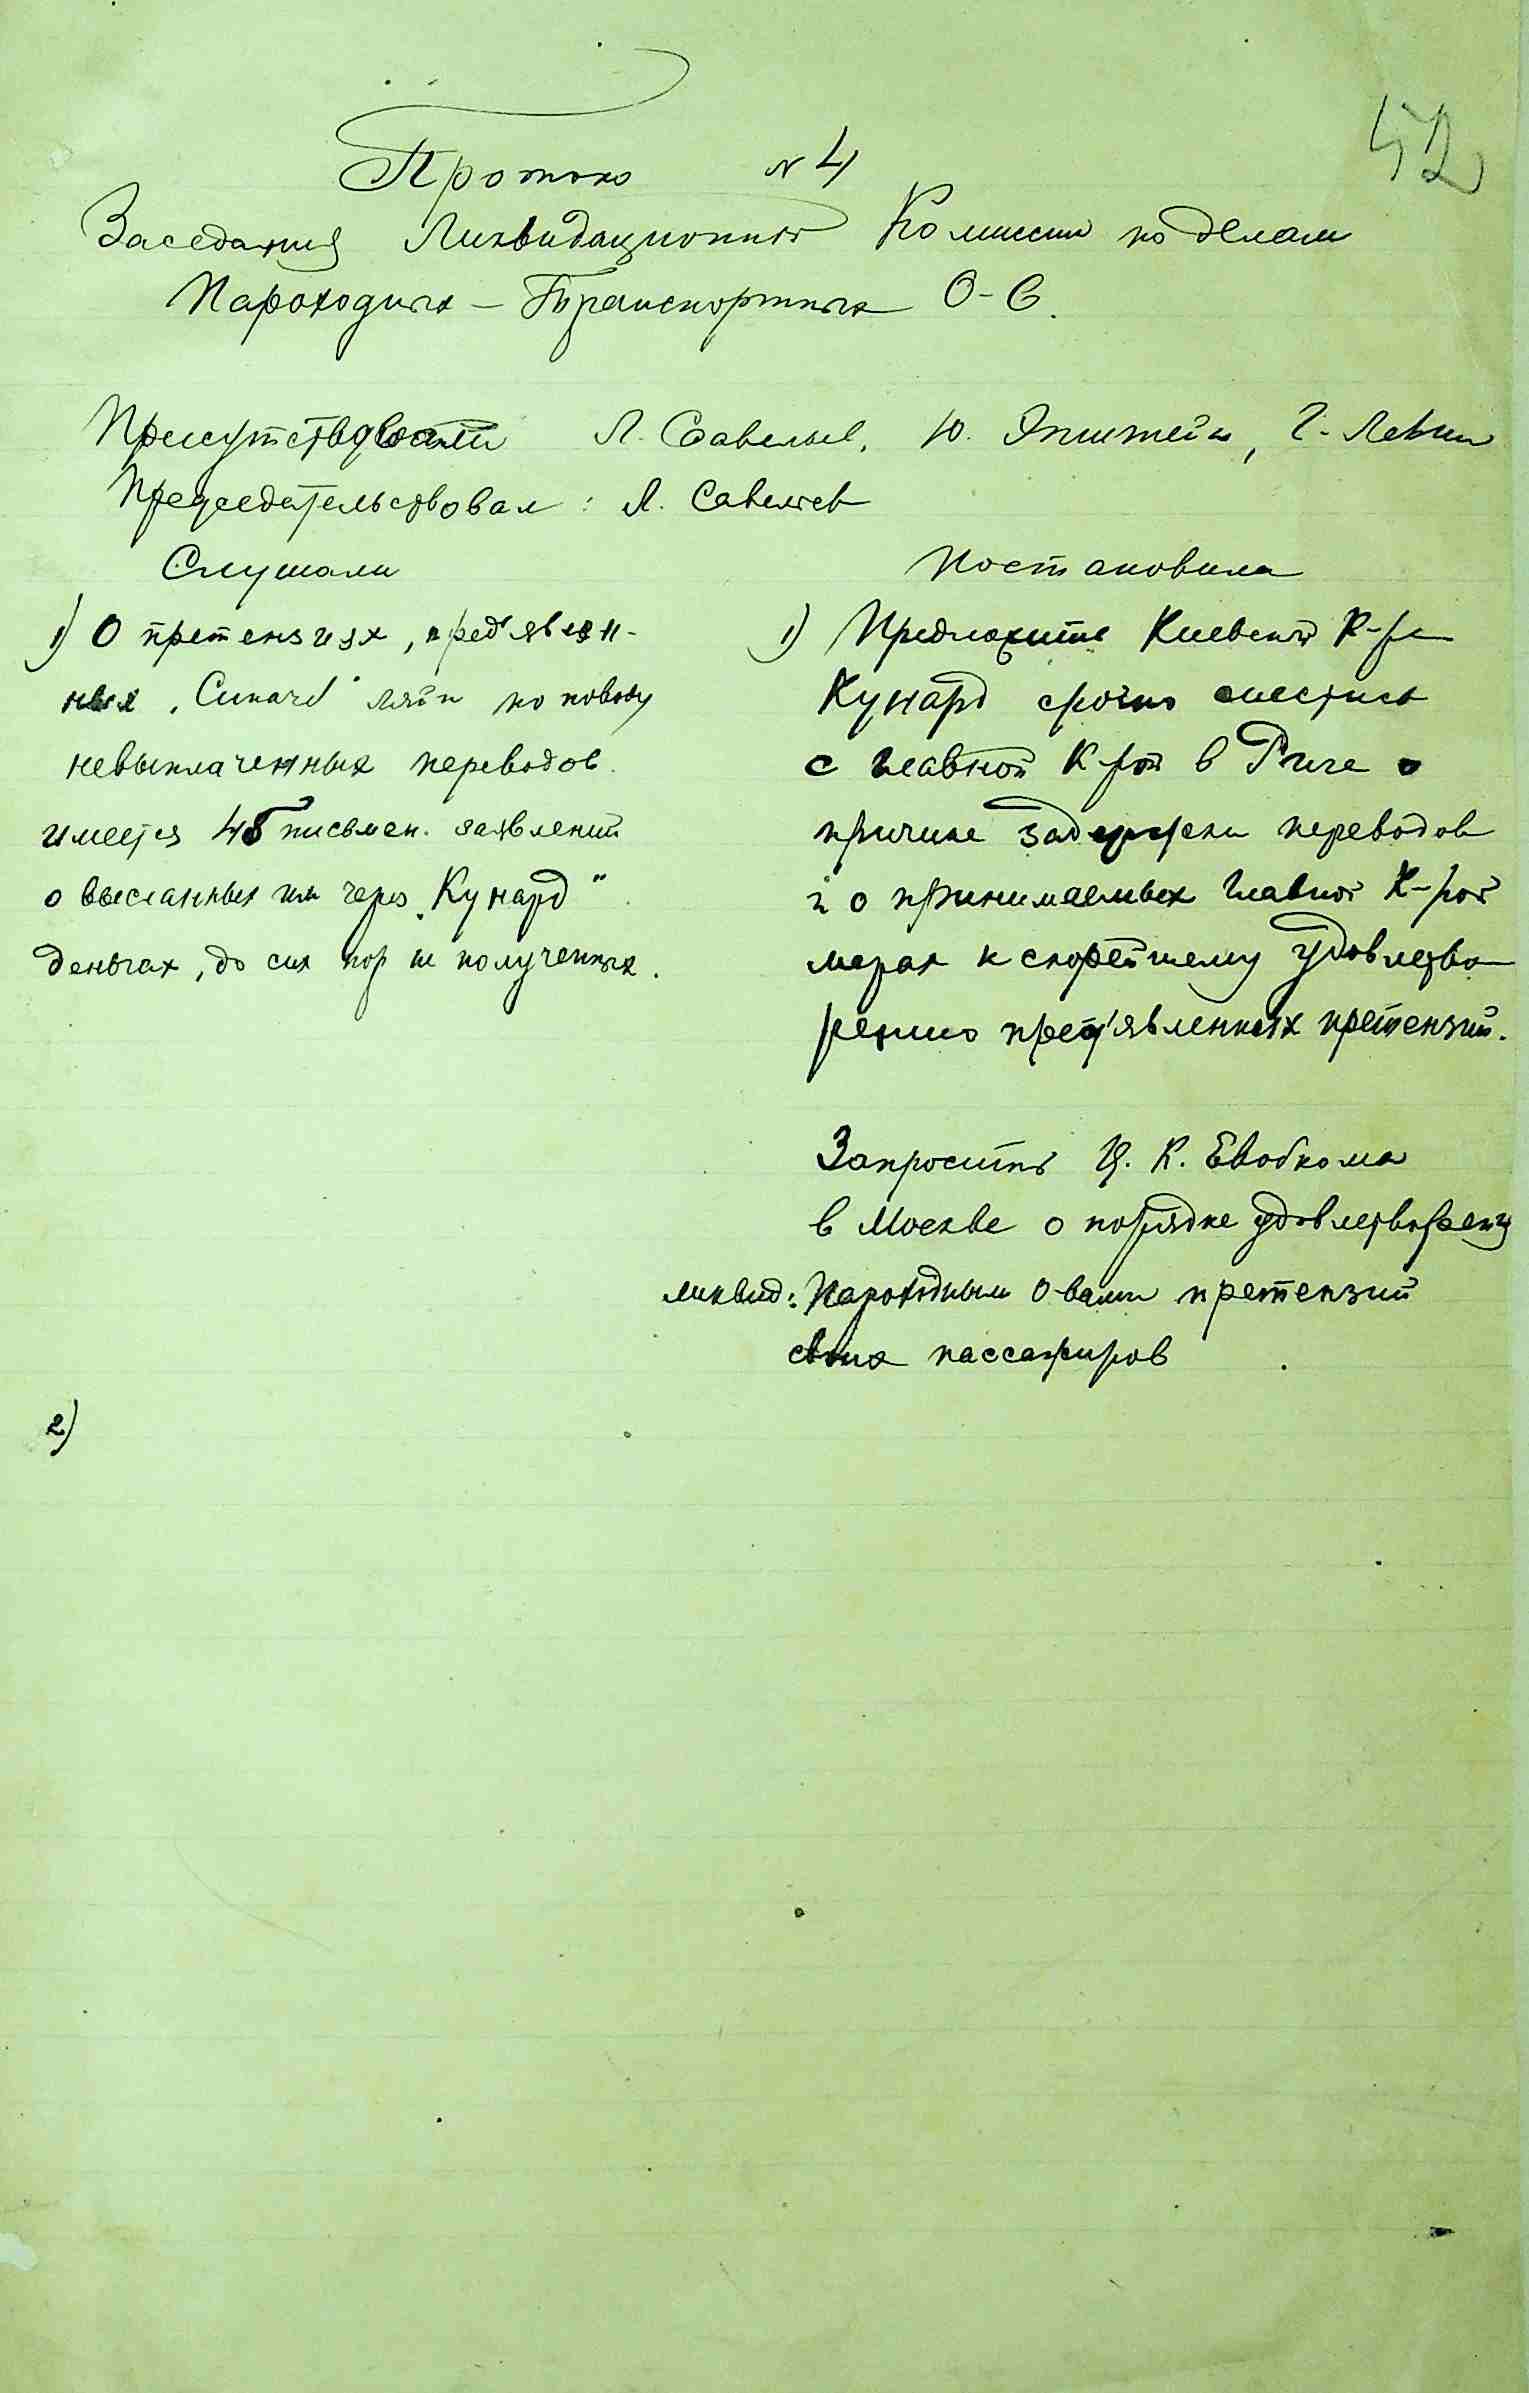 42
Протокол № 4
Заседания Ликвидационной Комиссии по делам
Пароходных – Транспортных О-в.
Присутствовали Л. Савельев, Ю. Эпштейн, Г. Левин
Председательствовал: Л. Савельев
Слушали
1) О претензиях, пред'явлен-
ных „ ” ляйн по поводу
невыплаченных переводов.
имеется 45 письмен. заявлений
о высланных им через „Кунард”
деньгах, до сих пор не полученных.
2)
Постановили
1) Предложить Киевской К-ре
Кунард срочно снестись
с главной К-рой в Риге о
причине задержки переводов
и о принимаемых главной К-рой
мерах к скорейшему удовлетво
рению пред'явленных претензий.
Запросить Ц. К. Евобкома
в Москве о порядке удовлетворения
ликвид: Пароходными О-вами претензий
своих пассажиров